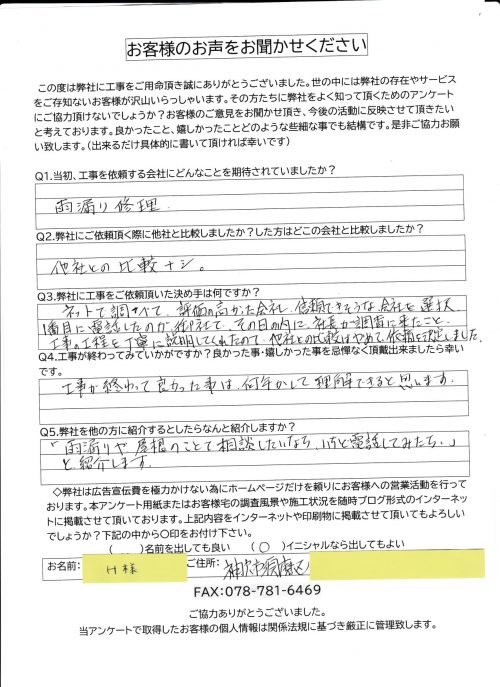 お客様のお声をお聞かせください
この度は弊社に工事をご用命頂き誠にありがとうございました。世の中には弊社の存在やサービス
をご存知ないお客様が沢山いらっしゃいます。その方たちに弊社をよく知って頂くためのアンケート
にご協力頂けないでしょうか?お客様のご意見をお聞かせ頂き、今後の活動に反映させて頂きたい
と考えております。良かったこと、嬉しかったことどのような些細な事でも結構です。是非ご協力お願
い致します。(出来るだけ具体的に書いて頂ければ幸いです)
Q1.当初、工事を依頼する会社にどんなことを期待されていましたか?
雨漏り修理.
Q2.弊社にご依頼頂く際に他社と比較しましたか?した方はどこの会社と比較しましたか?
他社との比較ナシ。
Q3.弊社に工事をご依頼頂いた決め手は何ですか?
ネットで調べて、評価の高かった会社、信頼できそうな会社を選択.
1番目に電話したのが御社で、その日の内に社長が調査に来たこと.
工事の工程を丁寧に説明してくれたので、他社との比較はやめて、依頼を決定しました.
Q4.工事が終わってみていかがですか?良かった事・嬉しかった事を忌憚なく頂戴出来ましたら幸い
です。
工事が終わって良かった事は、何年かして理解できると思います.
Q5.弊社を他の方に紹介するとしたらなんと紹介しますか?
「雨漏りや屋根のことで相談したいなら、電話してみたら.」
と紹介します.
◇弊社は広告宣伝費を極力かけない為にホームページだけを頼りにお客様への営業活動を行って
おります。本アンケート用紙またはお客様宅の調査風景や施工状況を随時ブログ形式のインターネッ
トに掲載させて頂いております。上記内容をインターネットや印刷物に掲載させて頂いてもよろしい
でしょうか?下記の中から〇印をお付け下さい。
( )名前を出しても良い ( ○ )イニシャルなら出してもよい
お名前: H様 ご住所: 神戸市須磨区
FAX:078-781-6469
ご協力ありがとうございました。
当アンケートで取得したお客様の個人情報は関係法規に基づき厳正に管理致します。